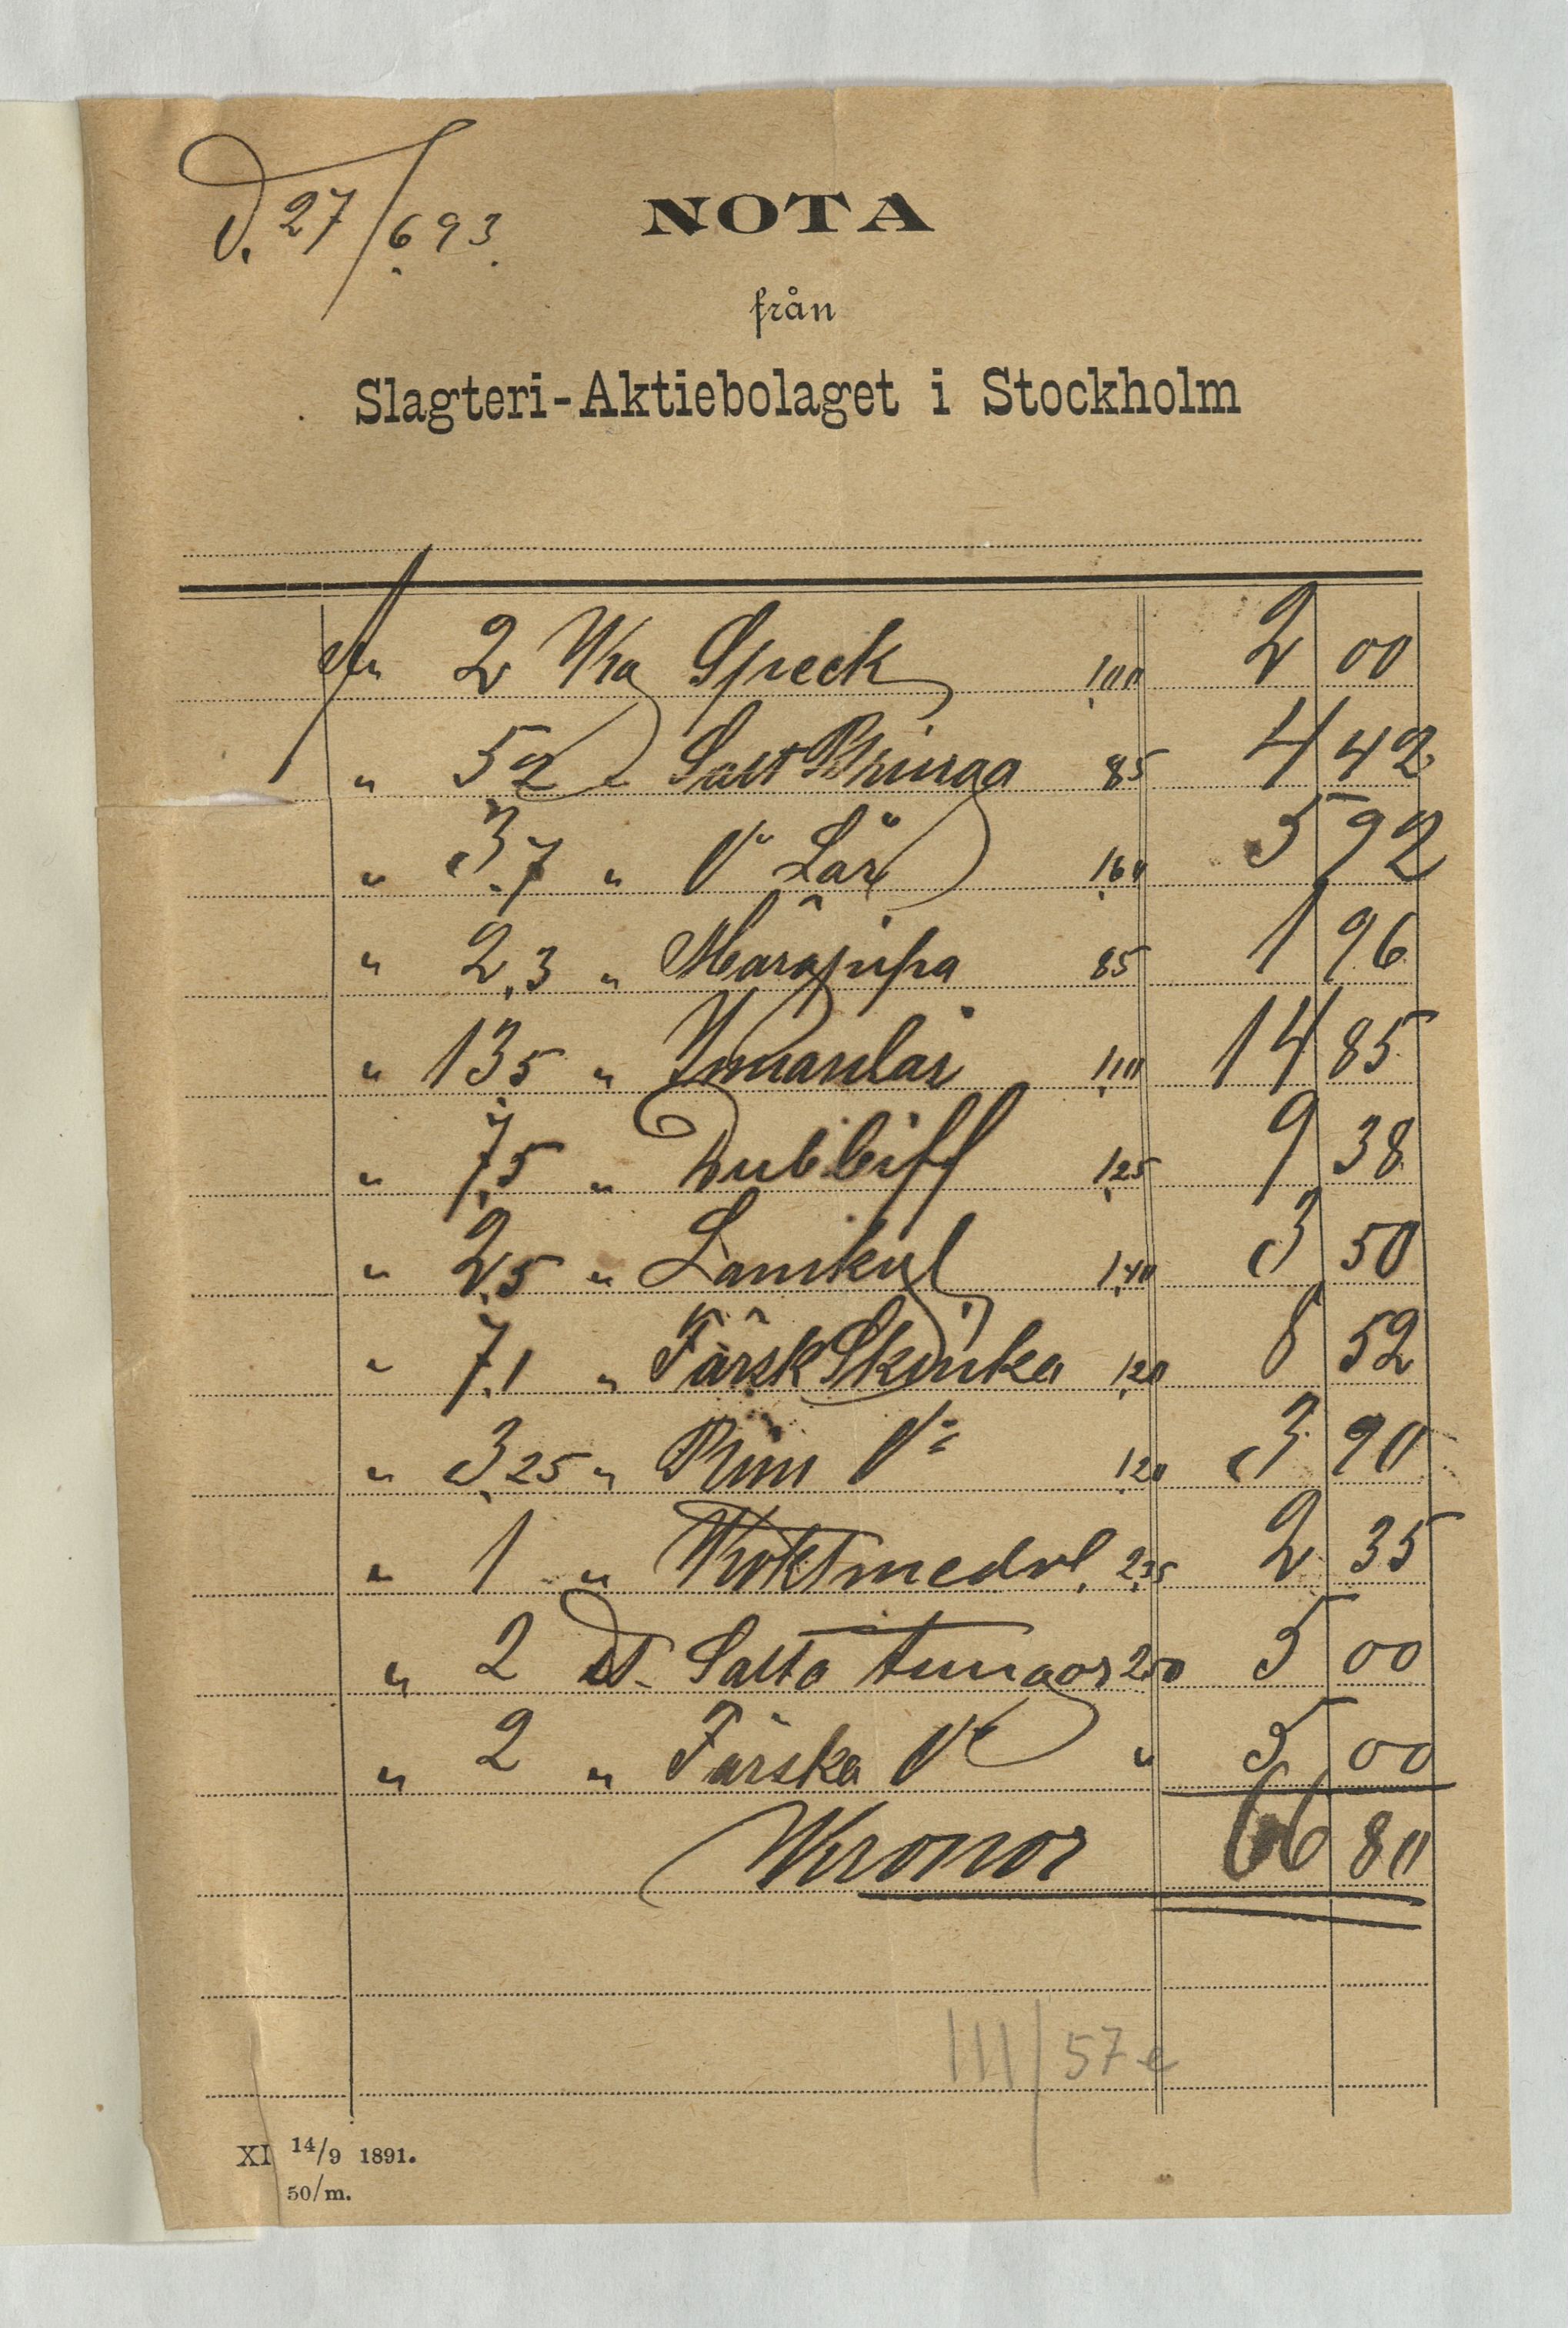 D. 27/6 93.
NOTA
från
Slagteri-Aktiebolaget i Stockholm
2 Kg Speck 1,00 2 00
" 5,2 " Salt Bringa 85 4 42
" 3,7 " Do Lår 1,60 5 92
" 2,3 " Märgpipa 85 1 96
" 13,5 " Innanlår 1,10 14 85
" 7,5 " Dubbiff 1,25 9 38
" 2,5 " 1,40 3 50
" 7,1 " Färsk Skinka 1,20 8 52
" 3,25 " Rim Do 1,20 3 90
" 1 " Rökt medv. 2,35 2 35
" 2 st Salta tungor 2,50 5 00
" 2 " Färska Do " 5 00
Kronor 66 80
III/57 e
XI 14/9 1891.
50/m.